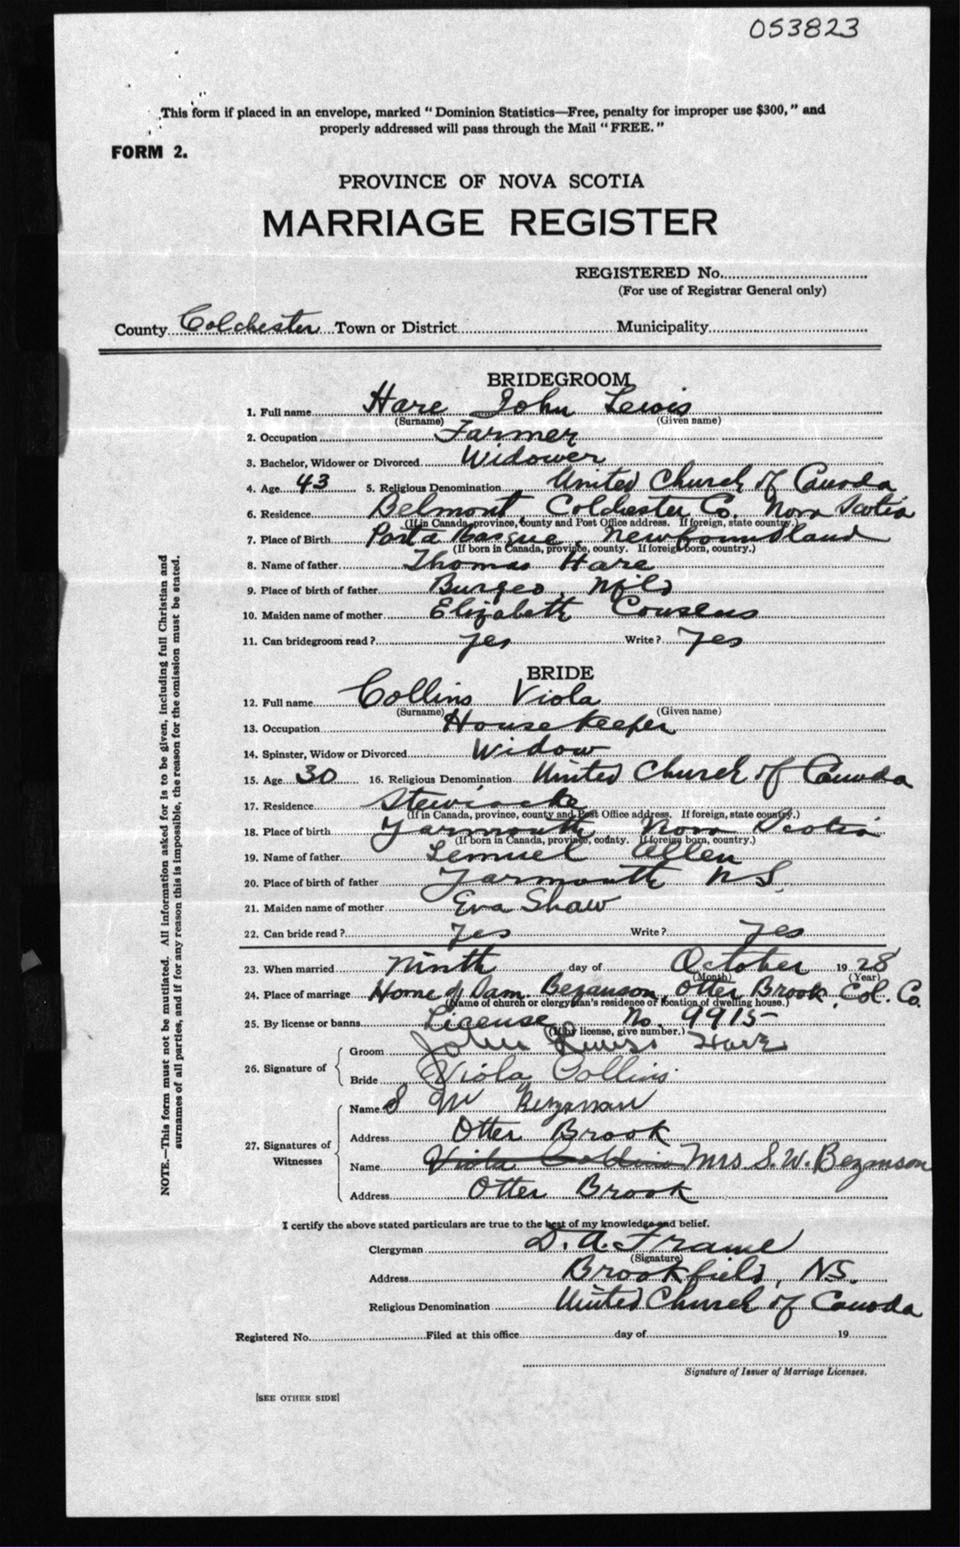 053823
This form if placed in an envelope, marked "Dominion Statistics—Free, penalty for improper use $300," and
properly addressed will pass through the Mail "FREE."
FORM 2.
PROVINCE OF NOVA SCOTIA
MARRIAGE REGISTER
REGISTERED No.
(For use of Registrar General only)
County Colchester Town or District Municipality
BRIDEGROOM
1. Full name Hare John Lewis
(Surname) (Given name)
2. Occupation Farmer
3. Bachelor, Widower or Divorced Widower
4. Age 43 5. Religious Denomination United Church of Canada
6. Residence Belmont, Colchester Co. Nova Scotia
(If in Canada, province, county and Post Office address. If foreign, state country.)
7. Place of Birth Porta Basque, Newfoundland
(If born in Canada, province, county. If foreign born, country.)
8. Name of father Thomas Hare
9. Place of birth of father Burgeo, Nfld
10. Maiden name of mother Elizabeth Cousens
11. Can bridegroom read? yes Write? yes
BRIDE
12. Full name Collins Viola
(Surname) (Given name)
13. Occupation Housekeeper
14. Spinster, Widow or Divorced Widow
15. Age 30 16. Religious Denomination United Church of Canada
17. Residence Stewiacke
(If in Canada, province, county and Post Office address. If foreign, state country.)
18. Place of birth Yarmouth Nova Scotia
(If born in Canada, province, county. If foreign born, country.)
19. Name of father Lemuel Allen
20. Place of birth of father Yarmouth N.S.
21. Maiden name of mother Eva Shaw
22. Can bride read? yes Write? yes
23. When married Ninth day of October 1928
(Month) (Year)
24. Place of marriage Home of Dam. Bezanson, Otter Brook, Col. Co.
(Name of church or clergyman's residence or location of dwelling house.)
25. By license or banns License No. 9915
(If by license, give number.)
26. Signature of
Groom John Lewis Hare
Bride Viola Collins
27. Signatures of Witnesses
Name S W Bezanson
Address Otter Brook
Name Viola Collins Mrs S. W. Bezanson
Address Otter Brook
I certify the above stated particulars are true to the best of my knowledge and belief.
Clergyman D. A. Frame
(Signature)
Address Brookfield, N.S.
Religious Denomination United Church of Canada
Registered No. Filed at this office day of 19
Signature of Issuer of Marriage Licenses.
[SEE OTHER SIDE]
NOTE.—This form must not be mutilated. All information asked for is to be given, including full Christian and
surnames of all parties, and if for any reason this is impossible, the reason for the omission must be stated.